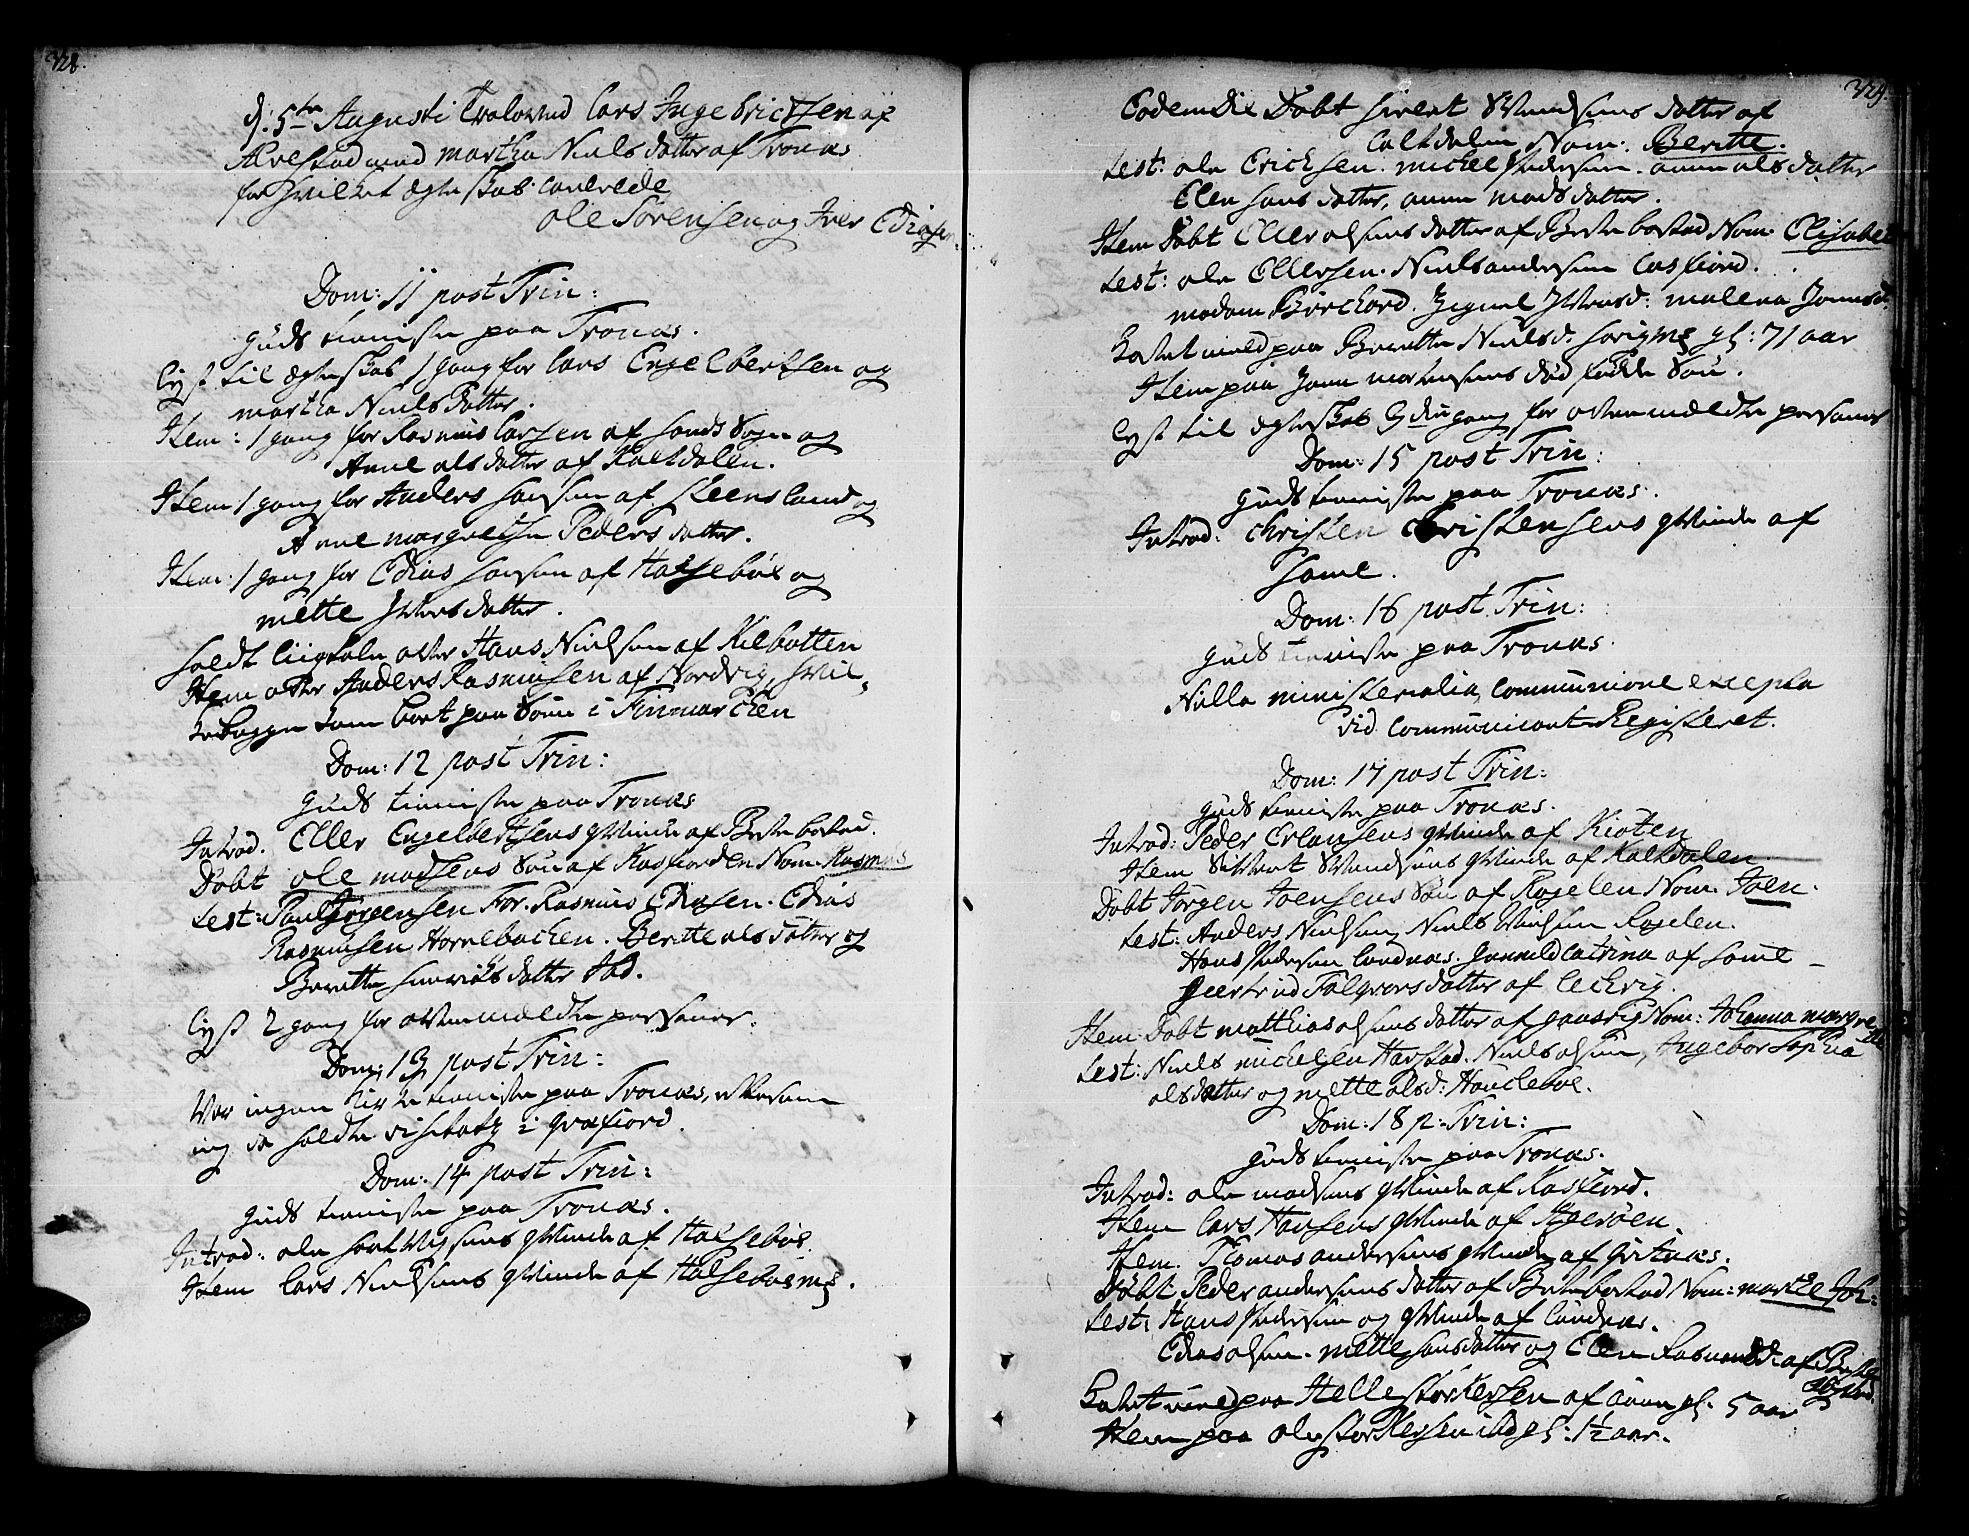 328.
d: 5te Augusti Trolovend Lars Ingebrictsen af
Ærestad med Martha Niels datter af Tronæs
for hvilket ægteskab caverede
Ole Sörensen og Iver Ediasen.
Dom: 11 post Trin:
Guds tieniste paa Tronæs.
Lyst til ægteskab 1 gang for Lars Engelbertsen og
Martha Niels datter.
Item: 1 gang for Rasmus Larsen af Sands Sogn og
Anne Ols datter af Kaltdalen.
Item 1 gang for Anders Hansen af Steensland og
Anne Margrethe Peders datter.
Item: 1 gang for Edias Hansen af Halseböe og
Mette Iversdatter.
Holdt Liigtale over Hans Nielsen af Kilbotten
Item over Anders Rasmusen af Nordvig, hvil-
ke begge kom bort paa Söen i Finmarcken
Dom: 12 post Trin:
Guds tieniste paa Tronæs
Introd. Eller Engelbertsens Qvinde af Bestebostad.
Döbt Ole Madsens Sön af Kasfiorden Nom. Rasmus
Test: Paul Jörgensen For. Rasmus Ediasen. Edias
Rasmusen Hornebachen. Beritte Ols datter og
Beritte Henrichs datter ibd.
Lyst 2 gang for ovenmældte personer.
Dom: 13 post Trin:
Var ingen Kirketieniste paa Tronæs, efftersom
ieg da holdte visebatz i Qvæfiord.
Dom: 14 post Trin:
Guds tieniste paa Tronæs.
Introd: Ole Hartvigsens Qvinde af Halseböe
Item Lars Nielsens Qvinde af Halseböe
329.
Eodem Die Döbt Sivert Svendsens datter af
Caltdalen Nom. Beritte.
Test: Ole Erichsen. Michel Pedersen. Anne Ols datter
Elen Hans datter, Anne Mads datter.
Item Döbt Eller Olsens datter af Bestebostad Nom. Elisabet
Test: Ole Ellersen. Niels Andersen Casfiord.
Madam Burchard. Zignel Iversd: Malena Jonsd.
Kastet mued paa Beritte Nielsd. gl: 71 aar
Item paa Jonn Mortensens död födde Sön.
Lyst til ægteskab 3die gang for ovenmældte personer
Dom: 15 post Trin:
Guds tieniste paa Tronæs.
Introd: Christen Christensens Qvinde af
Same.
Dom: 16 post Trin:
Guds tieniste paa Tronæs.
Nulla ministerialia, communione excepta
vid communicant Registeret.
Dom: 17 post Trin:
Guds tieniste paa Tronæs.
Introd: Peder Erlansens Qvinde af Kiöten
Item Sivert Svendsens Qvinde af Kaltdalen.
Döbt Jörgen Joensens Sön af Rogelen Nom. Joen.
Test: Anders Nielsen, Niels Rogelen.
Hans Pedersen Landnæs. Gunnild Catrina af Same
Geertrud Falqvorsdatter af Lechvig.
Item Döbt Matthias Olsens datter af Gansvig Nom: Johanna Margrete
Test: Niels Michelsen Harstad. Niels Olsen, Ingebor Sophia
Olsdatter og Mette Olsd: Haucleböe.
Dom: 18 p. Trin:
Guds tieniste paa Tronæs.
Introd: Ole Madsens Qvinde af Kasfiord.
Item Lars Hansens Qvinde af Gieröen.
Item. Thomas Andersens Qvinde af Grötnæs.
Döbt Peder Andersens datter af Bestebostad Nom: Marthe Joh:
Test: Hans Pedersen og Qvinde af Lundnæs.
Edias Olsen. Mette Hansdatter og Elen Rasmusd: af Beste
bostad.
Kastet mued paa Helle Storkersen af Aun gl. 5 aar
Item paa Ole Storkersen ibd gl: 1½ aar.